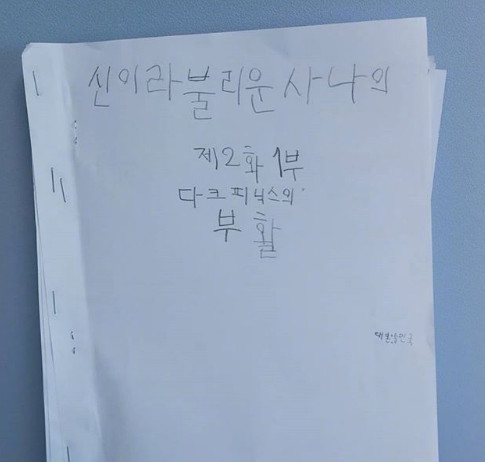 신이라불리운사나의
제2화1부
다크피닉스의
부활
대한민국